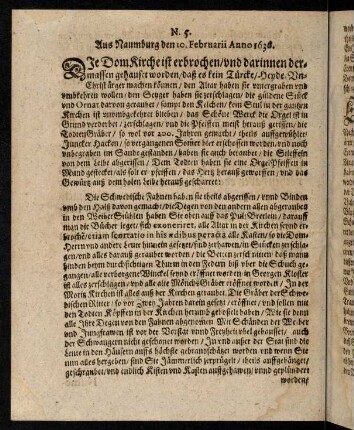 N. 5.
Aus Naumburg den 10. Februarii Anno 1636.
DIe DomKirche ist erbrochen/vnd darinnen der-
massen gehauset worden/daß es kein Türcke/Heyde. Vn-
Christ ärger machen können/den Altar haben sie vntergraben vnd
vmbkehren wollen/den Seyger haben sie zerschlagen/die güldene Stück
vnd Ornat darvon geraubet/sampt den Kelchen/kein Stul in der gantzen
Kirchen ist vnumbgekehrer blieben/das Schöne Werck die Orgel ist im
Grund verderbet/zerschlagen vnd die Pfeiffen meist herauß gerissen/die
TodtenGräber/so wol vor 200. Jahren gemacht/theils auffgewühlet/
Juncker Hacken/so vergangenen Sommer hier erschossen worden/vnd noch
vnbegraben im Sande gestanden/haben sie auch beraubet/die Stieffeln
von dem Leibe abgerissen/Dem Todten haben sie eine Tege Pfeiffen in
Mund gestecket/als solt er pfeiffen/das Hertz herauß geworffen/vnd das
Gewürtz auß dem holen Leibe herauß gescharret:
Die Schwedische Fahnen haben sie theils abgerissen/vnd Binden
vmb den Halß davon gemacht/die Degen von den andern allen abgerauber
in den Weiber Stühlen haben Sie oben auff das Pult Bretlein/darauff
man die Bücher leget/sich exoneriret. alle Altar in der Kirchen seynd er-
brochen/etiam scortatio in his ædibus peracta alle Kasten/so die Dom-
Herrn vnd andere Leute hinein gesetzet/sind zerhawen/in Stücken zerschla-
gen/vnd alles darauß geraubet worden/die Betten zerschnitten/daß man
hinden beym durchsichtigen Thurm in den Federn biß vber die Schuch ge-
gangen/alle verborgene Winckel seynd eröffnet worden in Georgen Kloster
ist alles zerschlagen/vnd alle alte MönchsGräber eröffnet worden/In
der Moritz Kirchen ist alles auß der Kirchen geraubet. Die Gräber der Schwe-
dischen Ritter/so vor zwey Jahren darein gesetzt/eröffnet/vnd sollen mit
den Todten Köpffen in der Kirchen herumb gekobelt haben/Wie sie denn
alle Ihre Degen von den Fahnen abgenommen Mit Schänden der Weiber
vnd Jungfrawen ist vor der Vorstat vnnd Freyheit vbel gehauset/auch
der Schwangern nicht geschonet worden/In vnd ausser der Stat sind die
Leute in den Häusern auffs höchste gebrandschätzt worden/vnd wenn Sie
nun alles hergeben/sind Sie Jämmerlich zerprügelt/theils auffgehänget/
geschraubet/vnd endlich Kisten vnd Kasten auffgehawen/vnd geplündert
worden/